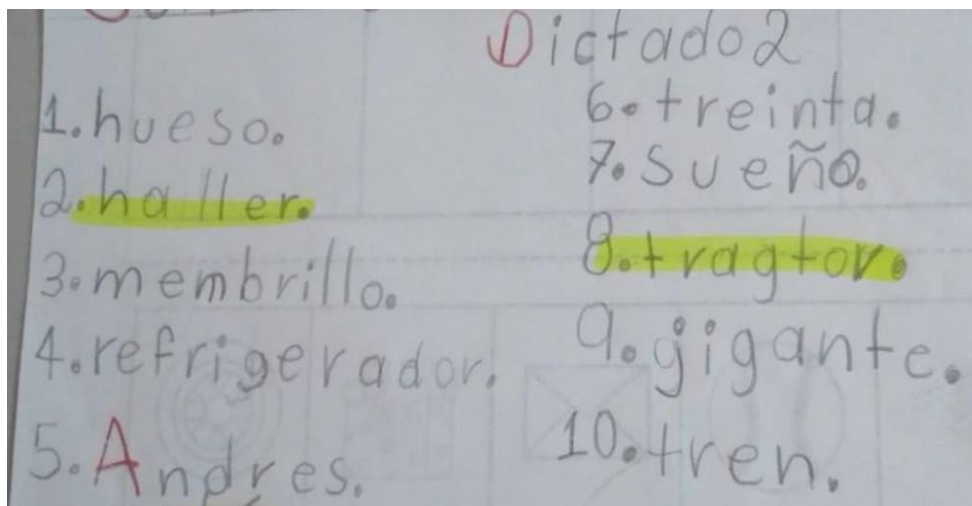 Dictado 2
1. hueso.
2. haller.
3. membrillo.
4. refrigerador.
5. Andres.
6. treinta.
7. sueño.
8. tragtor.
9. gigante.
10. tren.